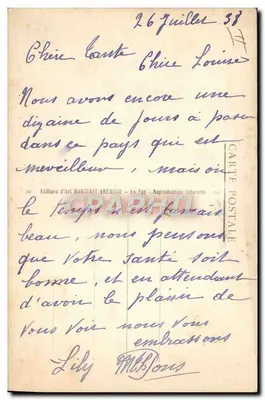 26 Juillet 38
Chère Tante
Chère Louise
Nous avons encore une
dizaine de jours à passer
dans ce pays qui est
merveilleux, mais où
Editions d'Art MARGERIT BRÉMOND - Le Puy - Reproduction interdite
le temps n'est jamais
beau, nous pensons
que votre santé soit
bonne, et en attendant
d'avoir le plaisir de
vous voir nous vous
embrassons
Lily
CARTE POSTALE